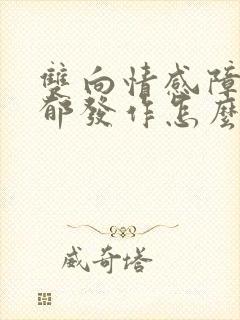 雙向情感障
郁發作怎麼
威奇塔